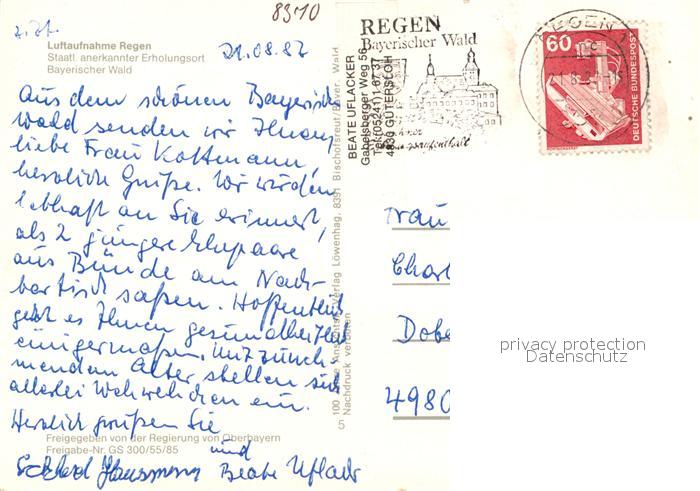 8310
z. Zt.
Luftaufnahme Regen
Staatl. anerkannter Erholungsort
Bayerischer Wald
21.08.87
Aus dem schönen Bayerisch
wald senden wir Ihnen,
liebe Frau Kottmann,
herzlich Grüße. Wir würden
lebhaft an Sie erinnert,
als 2 jüngere Ehepaare
aus Bünde am Nach-
bartisch saßen. Hoffentlich
geht es Ihnen gesundheitlich
einigermaßen. Mit zuneh-
mendem Alter stellen sich
allerlei Wehwehchen ein.
Herzlich grüßen Sie
Freigegeben von der Regierung von Oberbayern
Freigabe-Nr. GS 300/55/85
und
Eckhard Hausmann Beate Uflack
Verlag Löwenhag, 8391 Bischofsreut/Bayer. Wald
Nachdruck verboten
100
5
BEATE UFLACKER
Gabelsberger Weg 56
Tel. (05241) 1 67 37
4830 GÜTERSLOH
REGEN
Bayerischer Wald
REGEN
21.8.
60
DEUTSCHE BUNDESPOST
Frau
Charl
Dobe
4980
privacy protection
Datenschutz